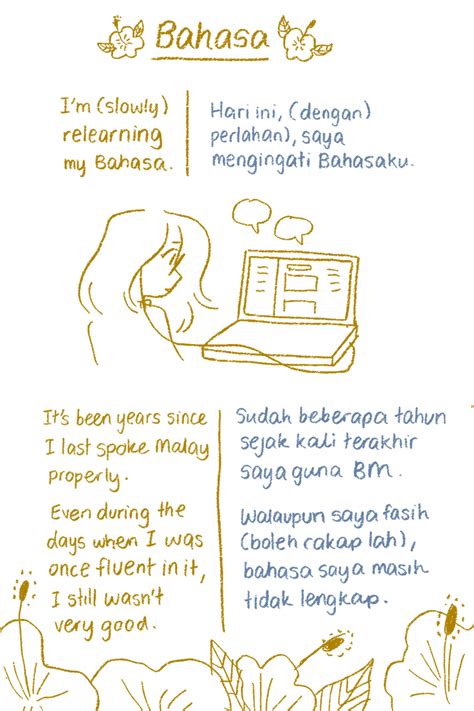 Bahasa
I'm (slowly)
relearning
my Bahasa.
Hari ini, (dengan)
perlahan), saya
mengingati Bahasaku.
It's been years since
I last spoke Malay
properly.
Even during the
days when I was
once fluent in it,
I still wasn't
very good.
Sudah beberapa tahun
sejak kali terakhir
saya guna BM.
Walaupun saya fasih
(boleh cakap lah),
bahasa saya masih
tidak lengkap.